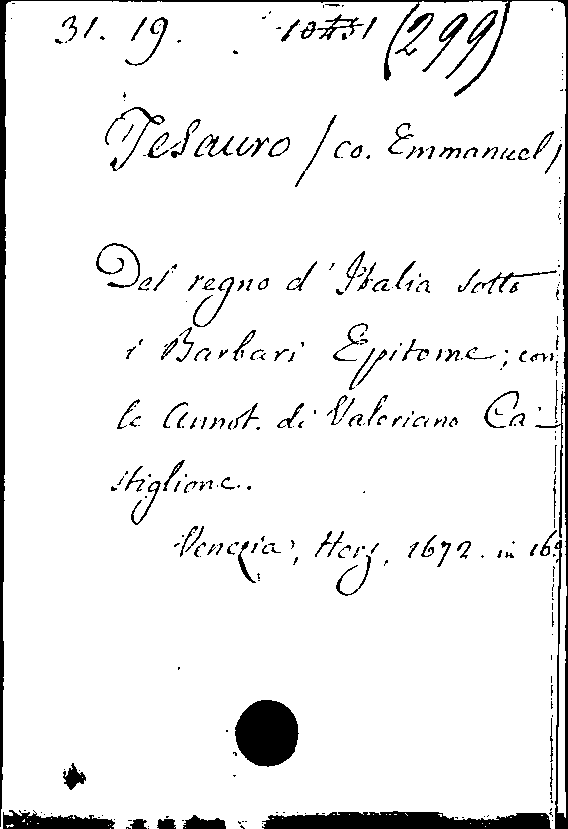 31. 19. (299)
Tesauro / co. Emmanuel /
Del regno d'Italia sotto
i Barbari Epitome; con
le Annot. di Valeriano Ca-
stiglione.
Venezia, Herz, 1672. in 16º